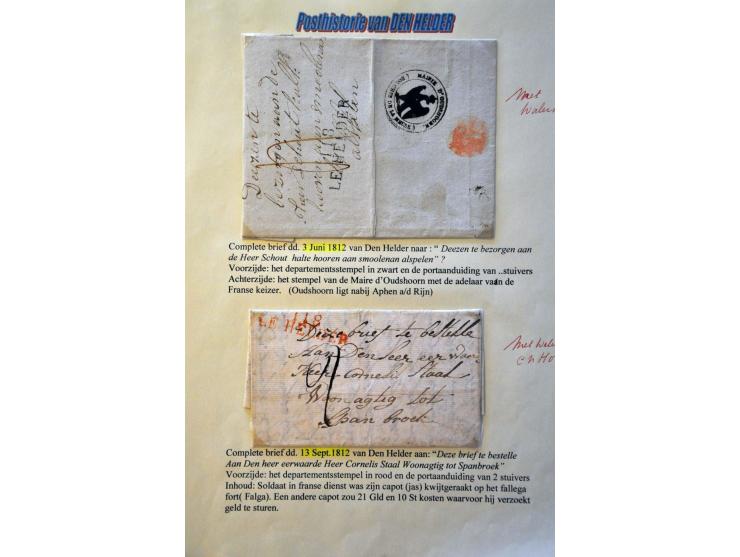 Posthistorie van DEN HELDER
Deezen te
118
LE HELDER
MAIRIE D'OUDSHOORN
Met
Complete brief dd. 3 Juni 1812 van Den Helder naar : “ Deezen te bezorgen aan
de Heer Schout halte hooren aan smoolenan alspelen” ?
Voorzijde: het departementsstempel in zwart en de portaanduiding van ..stuivers
Achterzijde: het stempel van de Maire d’Oudshoorn met de adelaar vaan de
Franse keizer. (Oudshoorn ligt nabij Aphen a/d Rijn)
118
LE HELDER
Deze brief te bestelle
Aan Den heer eer waar
Heer Cornelis Staal
Woonagtig tot
Span broek
Met
Complete brief dd. 13 Sept.1812 van Den Helder aan: “Deze brief te bestelle
Aan Den heer eerwaarde Heer Cornelis Staal Woonagtig tot Spanbroek”
Voorzijde: het departementsstempel in rood en de portaanduiding van 2 stuivers
Inhoud: Soldaat in franse dienst was zijn capot (jas) kwijtgeraakt op het fallega
fort( Falga). Een andere capot zou 21 Gld en 10 St kosten waarvoor hij verzoekt
geld te sturen.